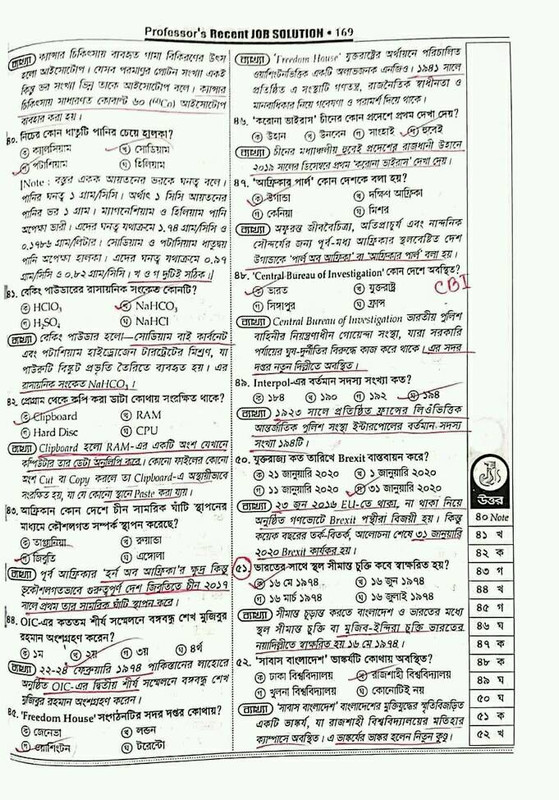 Professor's Recent JOB SOLUTION • 169
ব্যাখ্যা ক্যান্সার চিকিৎসায় ব্যবহৃত গামা বিকিরণের উৎস
হলো আইসোটোপ। যেসব পরমাণুর প্রোটন সংখ্যা একই
কিন্তু ভর সংখ্যা ভিন্ন তাকে আইসোটোপ বলে। ক্যান্সার
চিকিৎসায় সাধারণত কোবাল্ট ৬০ (⁶⁰Co) আইসোটোপ
ব্যবহার করা হয়।
৪০. নিচের কোন ধাতুটি পানির চেয়ে হালকা?
ক্যালসিয়াম খ সোডিয়াম
গ পটাশিয়াম ঘ হিলিয়াম
[Note : বস্তুর একক আয়তনের ভরকে ঘনত্ব বলে।
পানির ঘনত্ব ১ গ্রাম/সিসি। অর্থাৎ ১ সিসি আয়তনের
পানির ভর ১ গ্রাম। ম্যাগনেশিয়াম ও হিলিয়াম পানি
অপেক্ষা ভারী। এদের ঘনত্ব যথাক্রমে ১.৭৪ গ্রাম/সিসি ও
০.১৭৮৬ গ্রাম/লিটার। সোডিয়াম ও পটাসিয়াম ধাতুদ্বয়
পানি অপেক্ষা হালকা। এদের ঘনত্ব যথাক্রমে ০.৯৭
গ্রাম/সিসি ও ০.৮২ গ্রাম/সিসি। খ ও গ দুটিই সঠিক।]
৪১. বেকিং পাউডারের রাসায়নিক সংকেত কোনটি?
ক HClO₃ খ NaHCO₃
গ H₂SO₄ ঘ NaHCl
ব্যাখ্যা বেকিং পাউডার হলো—সোডিয়াম বাই কার্বনেট
এবং পটাশিয়াম হাইড্রোজেন টারট্রেটের মিশ্রণ, যা
পাউরুটি বিস্কুট প্রভৃতি তৈরিতে ব্যবহৃত হয়। এর
রাসায়নিক সংকেত NaHCO₃।
৪২. প্রোগ্রাম থেকে কপি করা ডাটা কোথায় সংরক্ষিত থাকে?
ক Clipboard খ RAM
গ Hard Disc ঘ CPU
ব্যাখ্যা Clipboard হলো RAM-এর একটি অংশ যেখানে
কম্পিউটার তার ডেটা অনুলিপি করে। কোনো ফাইলের কোনো
অংশ Cut বা Copy করলে তা Clipboard-এ অস্থায়ীভাবে
সংরক্ষিত হয়, যা যে কোনো স্থানে Paste করা যায়।
৪৩. আফ্রিকান কোন দেশে চীন সামরিক ঘাঁটি স্থাপনের
মাধমে কৌশলগত সম্পর্ক স্থাপন করেছে?
ক তাঞ্জানিয়া খ রুয়ান্ডা
গ জিবুতি ঘ এঙ্গোলা
ব্যাখ্যা পূর্ব আফ্রিকার 'হর্ন অব আফ্রিকা'র ক্ষুদ্র কিন্তু
ভূকৌশলগতভাবে গুরুত্বপূর্ণ দেশ জিবুতিতে চীন ২০১৭
সালে প্রথম তার সামরিক ঘাঁটি স্থাপন করে।
৪৪. OIC-এর কততম শীর্ষ সম্মেলনে বঙ্গবন্ধু শেখ মুজিবুর
রহমান অংশগ্রহণ করেন?
ক ১ম খ ২য় গ ৩য় ঘ ৪র্থ
ব্যাখ্যা ২২-২৪ ফেব্রুয়ারি ১৯৭৪ পাকিস্তানের লাহোরে
অনুষ্ঠিত OIC-এর দ্বিতীয় শীর্ষ সম্মেলনে বঙ্গবন্ধু শেখ
মুজিবুর রহমান অংশগ্রহণ করেন।
৪৫. 'Freedom House' সংগঠনটির সদর দপ্তর কোথায়?
ক জেনেভা খ লন্ডন
গ ওয়াশিংটন ঘ টরেন্টো
ব্যাখ্যা 'Freedom House' যুক্তরাষ্ট্রের অর্থায়নে পরিচালিত
ওয়াশিংটনভিত্তিক একটি অলাভজনক এনজিও। ১৯৪১ সালে
প্রতিষ্ঠিত এ সংস্থাটি গণতন্ত্র, রাজনৈতিক স্বাধীনতা ও
মানবাধিকার নিয়ে গবেষণা ও পরামর্শ দিয়ে থাকে।
৪৬. 'করোনা ভাইরাস' চীনের কোন প্রদেশে প্রথম দেখা দেয়?
ক উহান খ উনবেন গ সাংহাই ঘ হুবেই
ব্যাখ্যা চীনের মধ্যাঞ্চলীয় হুবেই প্রদেশের রাজধানী উহানে
২০১৯ সালের ডিসেম্বরে প্রথম 'করোনা ভাইরাস' দেখা দেয়।
৪৭. 'আফ্রিকার পার্ল' কোন দেশকে বলা হয়?
ক উগান্ডা খ দক্ষিণ আফ্রিকা
গ কেনিয়া ঘ মিশর
ব্যাখ্যা অফুরন্ত জীববৈচিত্র্য, অতিপ্রাচুর্য এবং নান্দনিক
সৌন্দর্যের জন্য পূর্ব-মধ্য আফ্রিকার স্থলবেষ্টিত দেশ
উগান্ডাকে 'পার্ল অব আফ্রিকা' বা 'আফ্রিকার পার্ল' বলা হয়।
৪৮. 'Central Bureau of Investigation' কোন দেশে অবস্থিত?
ক ভারত খ যুক্তরাষ্ট্র
গ সিঙ্গাপুর ঘ ফ্রান্স
CBI
ব্যাখ্যা Central Bureau of Investigation ভারতীয় পুলিশ
বাহিনীর নিয়ন্ত্রণাধীন গোয়েন্দা সংস্থা, যারা সরকারি
পর্যায়ের ঘুষ-দুর্নীতির বিরুদ্ধে কাজ করে থাকে। এর সদর
দপ্তর নতুন দিল্লীতে অবস্থিত।
৪৯. Interpol-এর বর্তমান সদস্য সংখ্যা কত?
ক ১৮৪ খ ১৯০ গ ১৯২ ঘ ১৯৪
ব্যাখ্যা ১৯২৩ সালে প্রতিষ্ঠিত ফ্রান্সের লিওঁভিত্তিক
আন্তর্জাতিক পুলিশ সংস্থা ইন্টারপোলের বর্তমান সদস্য
সংখ্যা ১৯৪টি।
৫০. যুক্তরাজ্য কত তারিখে Brexit বাস্তবায়ন করে?
ক ২১ জানুয়ারি ২০২০ খ ১ জানুয়ারি ২০২০
গ ১১ জানুয়ারি ২০২০ ঘ ৩১ জানুয়ারি ২০২০
ব্যাখ্যা ২৩ জুন ২০১৬ EU-তে থাকা, না থাকা নিয়ে
অনুষ্ঠিত গণভোটে Brexit পন্থীরা বিজয়ী হয়। কিন্তু
কয়েক বছরের তর্ক-বিতর্ক, আলোচনা শেষে ৩১ জানুয়ারি
২০২০ Brexit কার্যকর হয়।
৫১. ভারতের সাথে স্থল সীমান্ত চুক্তি কবে স্বাক্ষরিত হয়?
ক ১৬ মে ১৯৭৪ খ ১৬ জুন ১৯৭৪
গ ১৬ মার্চ ১৯৭৪ ঘ ১৬ জুলাই ১৯৭৪
ব্যাখ্যা সীমান্ত চূড়ান্ত করতে বাংলাদেশ ও ভারতের মধ্যে
স্থল সীমান্ত চুক্তি বা মুজিব-ইন্দিরা চুক্তি ভারতের
নয়াদিল্লীতে স্বাক্ষরিত হয় ১৬ মে ১৯৭৪।
৫২. 'সাবাস বাংলাদেশ' ভাস্কর্যটি কোথায় অবস্থিত?
ক ঢাকা বিশ্ববিদ্যালয় খ রাজশাহী বিশ্ববিদ্যালয়
গ খুলনা বিশ্ববিদ্যালয় ঘ কোনোটিই নয়
ব্যাখ্যা 'সাবাস বাংলাদেশ' বাংলাদেশের মুক্তিযুদ্ধের স্মৃতিবিজড়িত
একটি ভাস্কর্য, যা রাজশাহী বিশ্ববিদ্যালয়ের মতিহার
ক্যাম্পাসে অবস্থিত। এ ভাস্কর্যের ভাস্কর হলেন নিতুন কুণ্ডু।
উত্তর
৪০ Note
৪১ খ
৪২ ক
৪৩ গ
৪৪ খ
৪৫ গ
৪৬ ঘ
৪৭ ক
৪৮ ক
৪৯ ঘ
৫০ ঘ
৫১ ক
৫২ খ